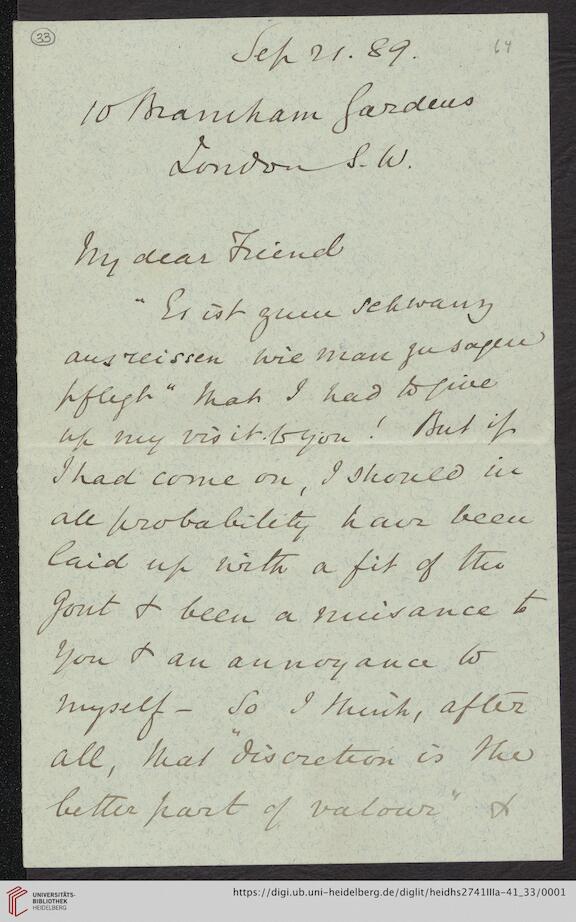 33
Sep 21. 89.
64
10 Bramham Gardens
London S. W.
My dear Friend
"Es ist zum schwanz
ausreissen wie man zu sagen
pflegt" that I had to give
up my visit to you! But if
I had come on, I should in
all probability have been
laid up with a fit of the
Gout & been a nuisance to
you & an annoyance to
myself – So I think, after
all, that "discretion is the
better part of valour" &
UNIVERSITÄTS-
BIBLIOTHEK
HEIDELBERG
https://digi.ub.uni-heidelberg.de/diglit/heidhs2741IIIa-41_33/0001